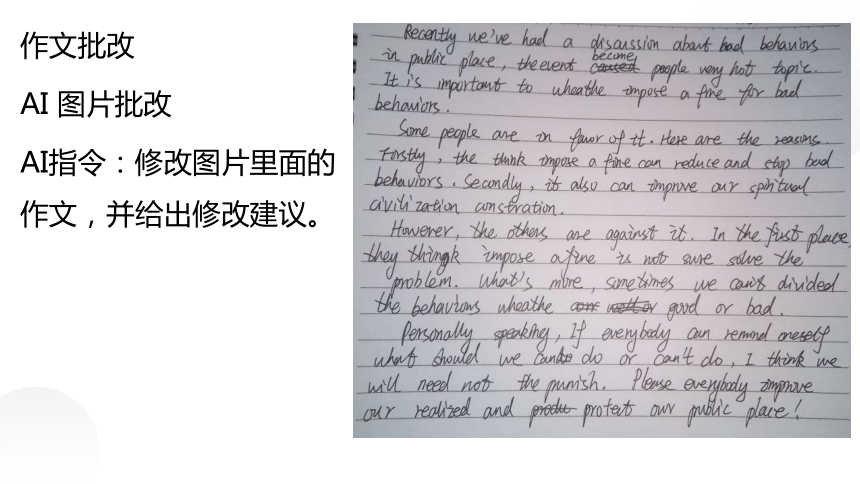 作文批改
AI 图片批改
AI指令：修改图片里面的
作文，并给出修改建议。
Recently we've had a discussion about bad behaviors
in public place, the event become people very hot topic.
It is important to wheathe impose a fine for bad
behaviors.
Some people are in favor of it. Here are the reasons.
Forstly, the think impose a fine can reduce and stop bad
behaviors. Secondly, it also can improve our spiritual
civilization
However, the others are against it. In the first place,
they think impose a fine is not sure solve the
problem. What's more, sometimes we can't divided
the behaviors wheathe good or bad.
Personally speaking, If everybody can remind oneself
what should we do or can't do, I think we
will need not the punish. Please everybody improve
our realized and protect our public place!